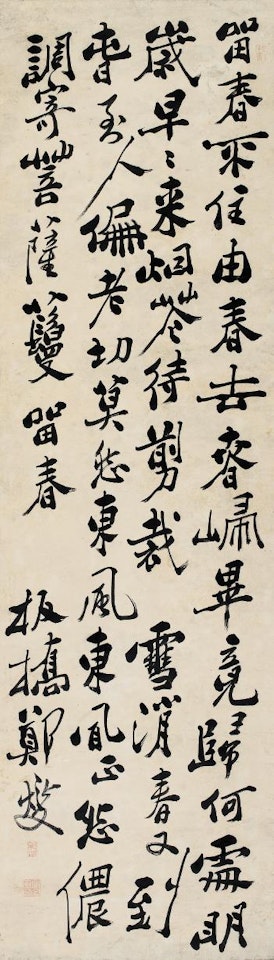 留春不住由春去春歸畢竟歸何處明
歲早〻來烟花待剪裁 雪消春又到
春至人偏老切莫怨東風東風正怨儂
調寄菩薩鬘 留春 板橋鄭燮